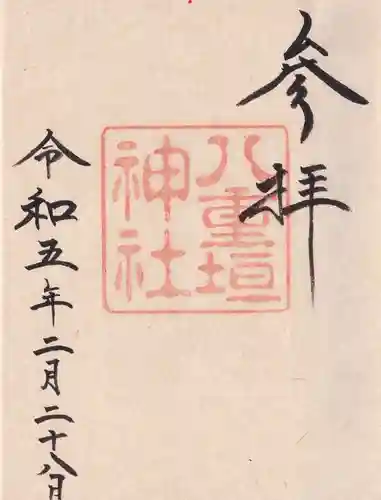 參拝
八重垣
神社
令和五年二月二十八日